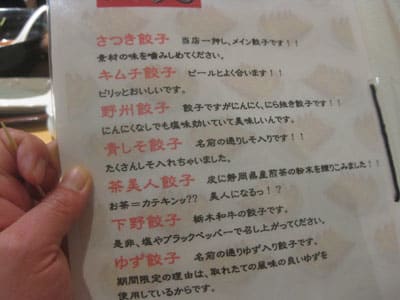 さつき餃子　当店一押し、メイン餃子です！！
素材の味を噛みしめてください。
キムチ餃子　ビールとよく合います！！
ピリッとおいしいです。
野州餃子　餃子ですがにんにく、にら抜き餃子です！！
にんにくなしでも塩味効いていて美味しいんです。
青しそ餃子　名前の通りしそ入りです！！
たくさんしそ入れちゃいました。
茶美人餃子　皮に静岡県産煎茶の粉末を練りこみました！！
お茶＝カテキンッ??　美人になるっ！？
下野餃子　栃木和牛の餃子です。
是非、塩やブラックペッパーで召し上がってください。
ゆず餃子　名前の通りゆず入り餃子です。
期間限定の理由は、取れたての風味の良いゆずを
使用しているからです。